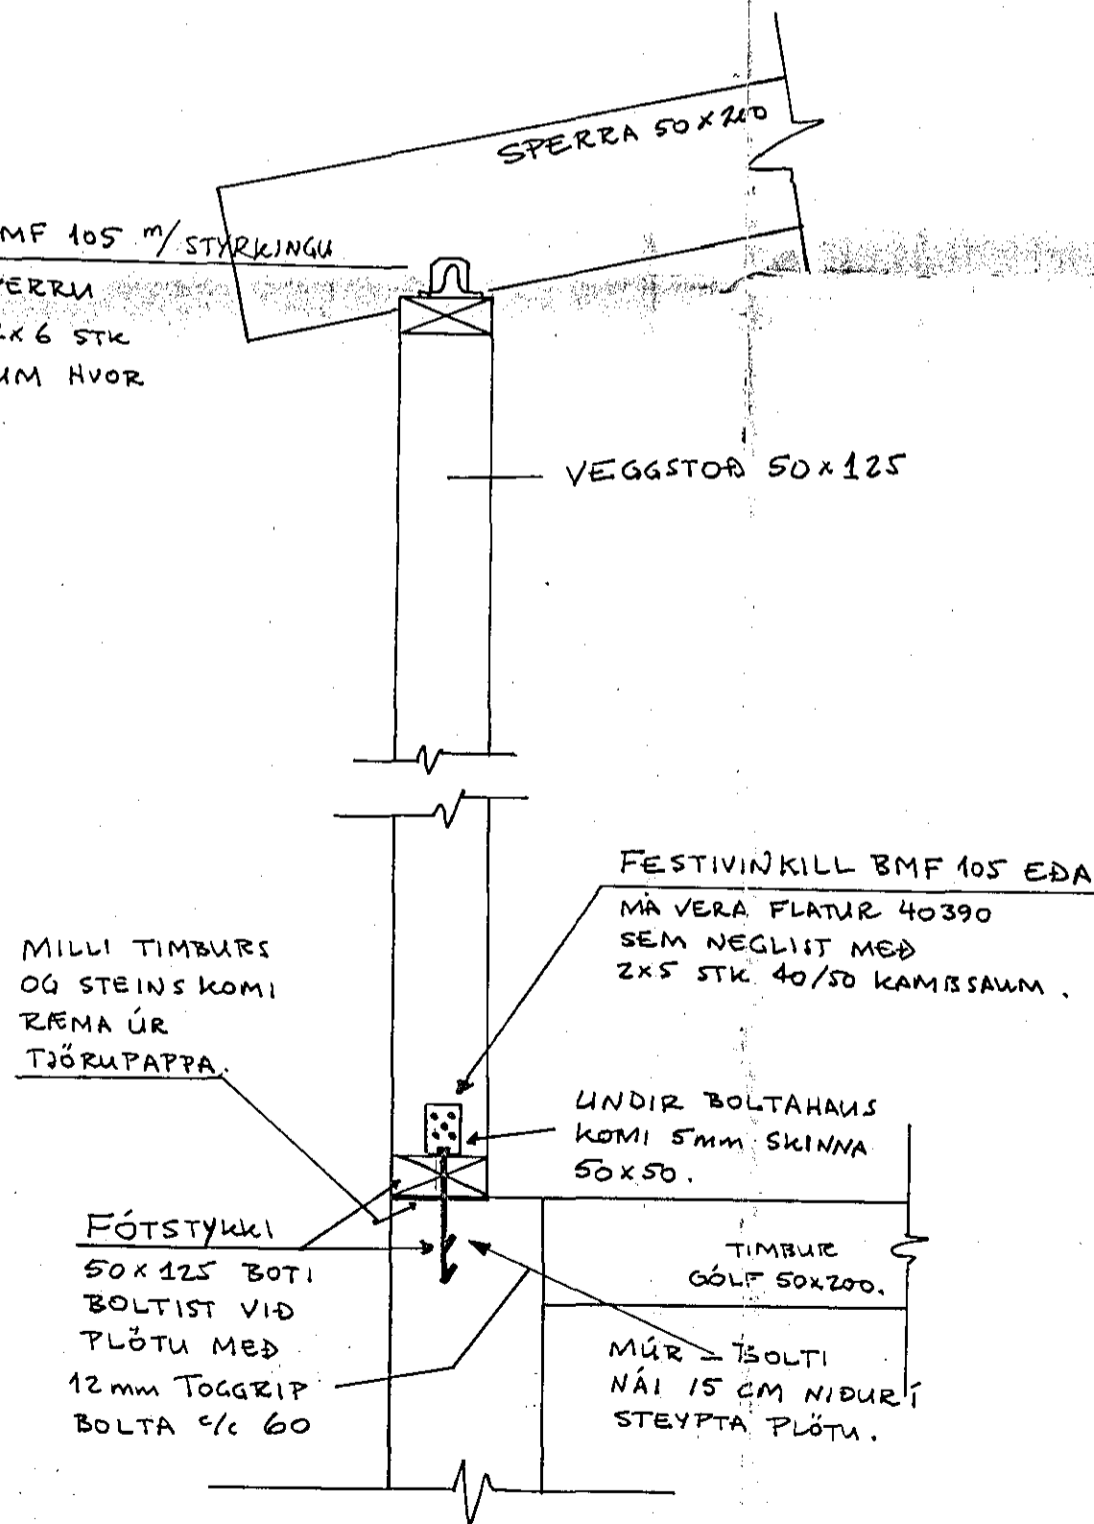 SPERRA 50×200
MF 105 m/STYRKINGU
PERRU
2×6 STK
UM HVOR
VEGGSTOÐ 50×125
FESTIVINKILL BMF 105 EÐA
MÁ VERA FLATUR 40390
SEM NEGLIST MEÐ
2×5 STK 40/50 KAMBSAUM.
MILLI TIMBURS
OG STEINS KOMI
RÆMA ÚR
TJÖRUPAPPA.
UNDIR BOLTAHAUS
KOMI 5mm SKINNA
50×50.
FÓTSTYKKI
50×125 BOTI
BOLTIST VIÐ
PLÖTU MEÐ
12mm TOGGRIP
BOLTA c/c 60
TIMBUR
GÓLF 50×200.
MÚR-BOLTI
NÁI 15 CM NIÐUR Í
STEYPTA PLÖTU.